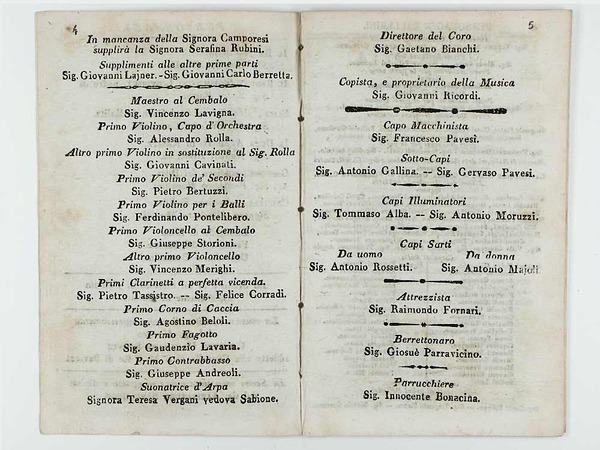 4
In mancanza della Signora Camporesi
supplirà la Signora Serafina Rubini.
Supplimenti alle altre prime parti
Sig. Giovanni Lajner. - Sig. Giovanni Carlo Berretta.
Maestro al Cembalo
Sig. Vincenzo Lavigna.
Primo Violino, Capo d'Orchestra
Sig. Alessandro Rolla.
Altro primo Violino in sostituzione al Sig. Rolla
Sig. Giovanni Cavinati.
Primo Violino de' Secondi
Sig. Pietro Bertuzzi.
Primo Violino per i Balli
Sig. Ferdinando Pontelibero.
Primo Violoncello al Cembalo
Sig. Giuseppe Storioni.
Altro primo Violoncello
Sig. Vincenzo Merighi.
Primi Clarinetti a perfetta vicenda.
Sig. Pietro Tassistro. -- Sig. Felice Corradi.
Primo Corno di Caccia
Sig. Agostino Beloli.
Primo Fagotto
Sig. Gaudenzio Lavaria.
Primo Contrabbasso
Sig. Giuseppe Andreoli.
Suonatrice d'Arpa
Signora Teresa Vergani vedova Sabione.
5
Direttore del Coro
Sig. Gaetano Bianchi.
Copista, e proprietario della Musica
Sig. Giovanni Ricordi.
Capo Macchinista
Sig. Francesco Pavesi.
Sotto-Capi
Sig. Antonio Gallina. -- Sig. Gervaso Pavesi.
Capi Illuminatori
Sig. Tommaso Alba. -- Sig. Antonio Moruzzi.
Capi Sarti
Da uomo Da donna
Sig. Antonio Rossetti. Sig. Antonio Majoli
Attrezzista
Sig. Raimondo Fornari.
Berrettonaro
Sig. Giosuè Parravicino.
Parrucchiere
Sig. Innocente Bonacina.